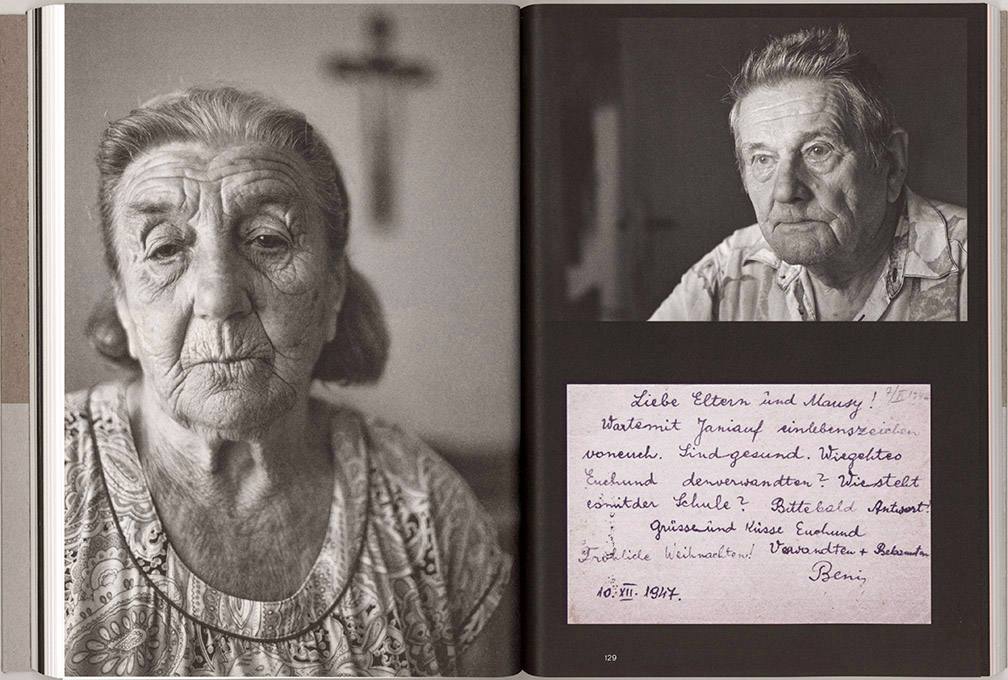 Liebe Eltern und Mausy!
Wartemit Janiauf einlebenszeichen
voneuch. Sind gesund. Wiegehtes
Euchund denverwandten? Wie steht
esmitder Schule? Bittebald Antwort!
Grüsse und Küsse Euchund
Fröhliche Weihnachten! Verwandten + Bekannten
Beni
10. XII. 1947.
129